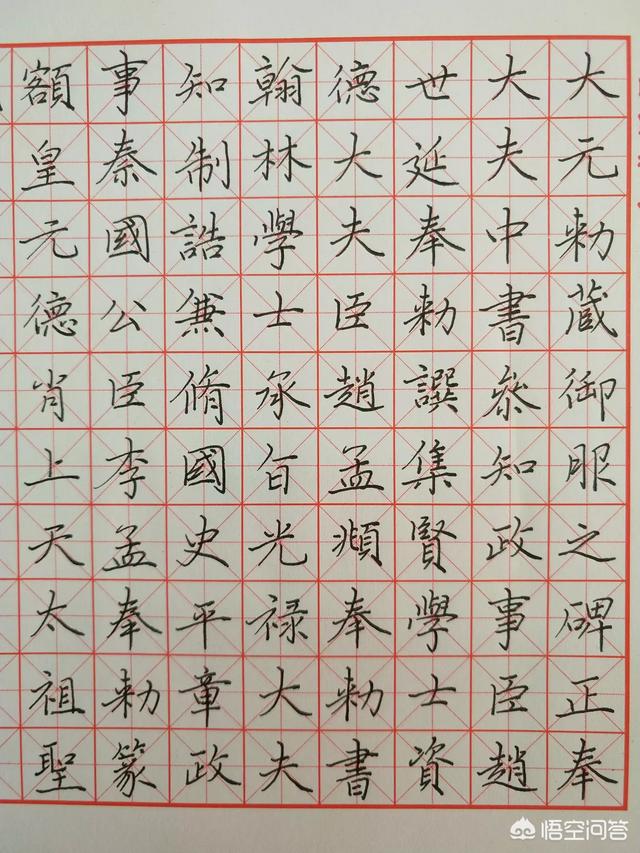 大元勑蔵御服之碑正奉
大夫中書叅知政事臣趙
世延奉勑譔集賢學士資
德大夫臣趙孟頫奉勑書
翰林學士承旨光禄大夫
知制誥兼脩國史平章政
事秦國公臣李孟奉勑篆
額皇元德肖上天太祖聖
悟空问答